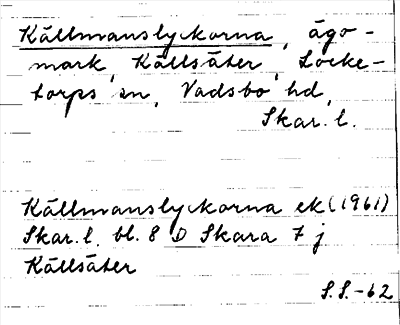 Källmanslyckorna, ägo-
mark, Källsäter, Locke-
torps sn, Vadsbo hd,
Skar. l.
Källmanslyckorna ek (1961)
Skar. l. bl. 8 D Skara 7 j
Källsäter
S.S.-62